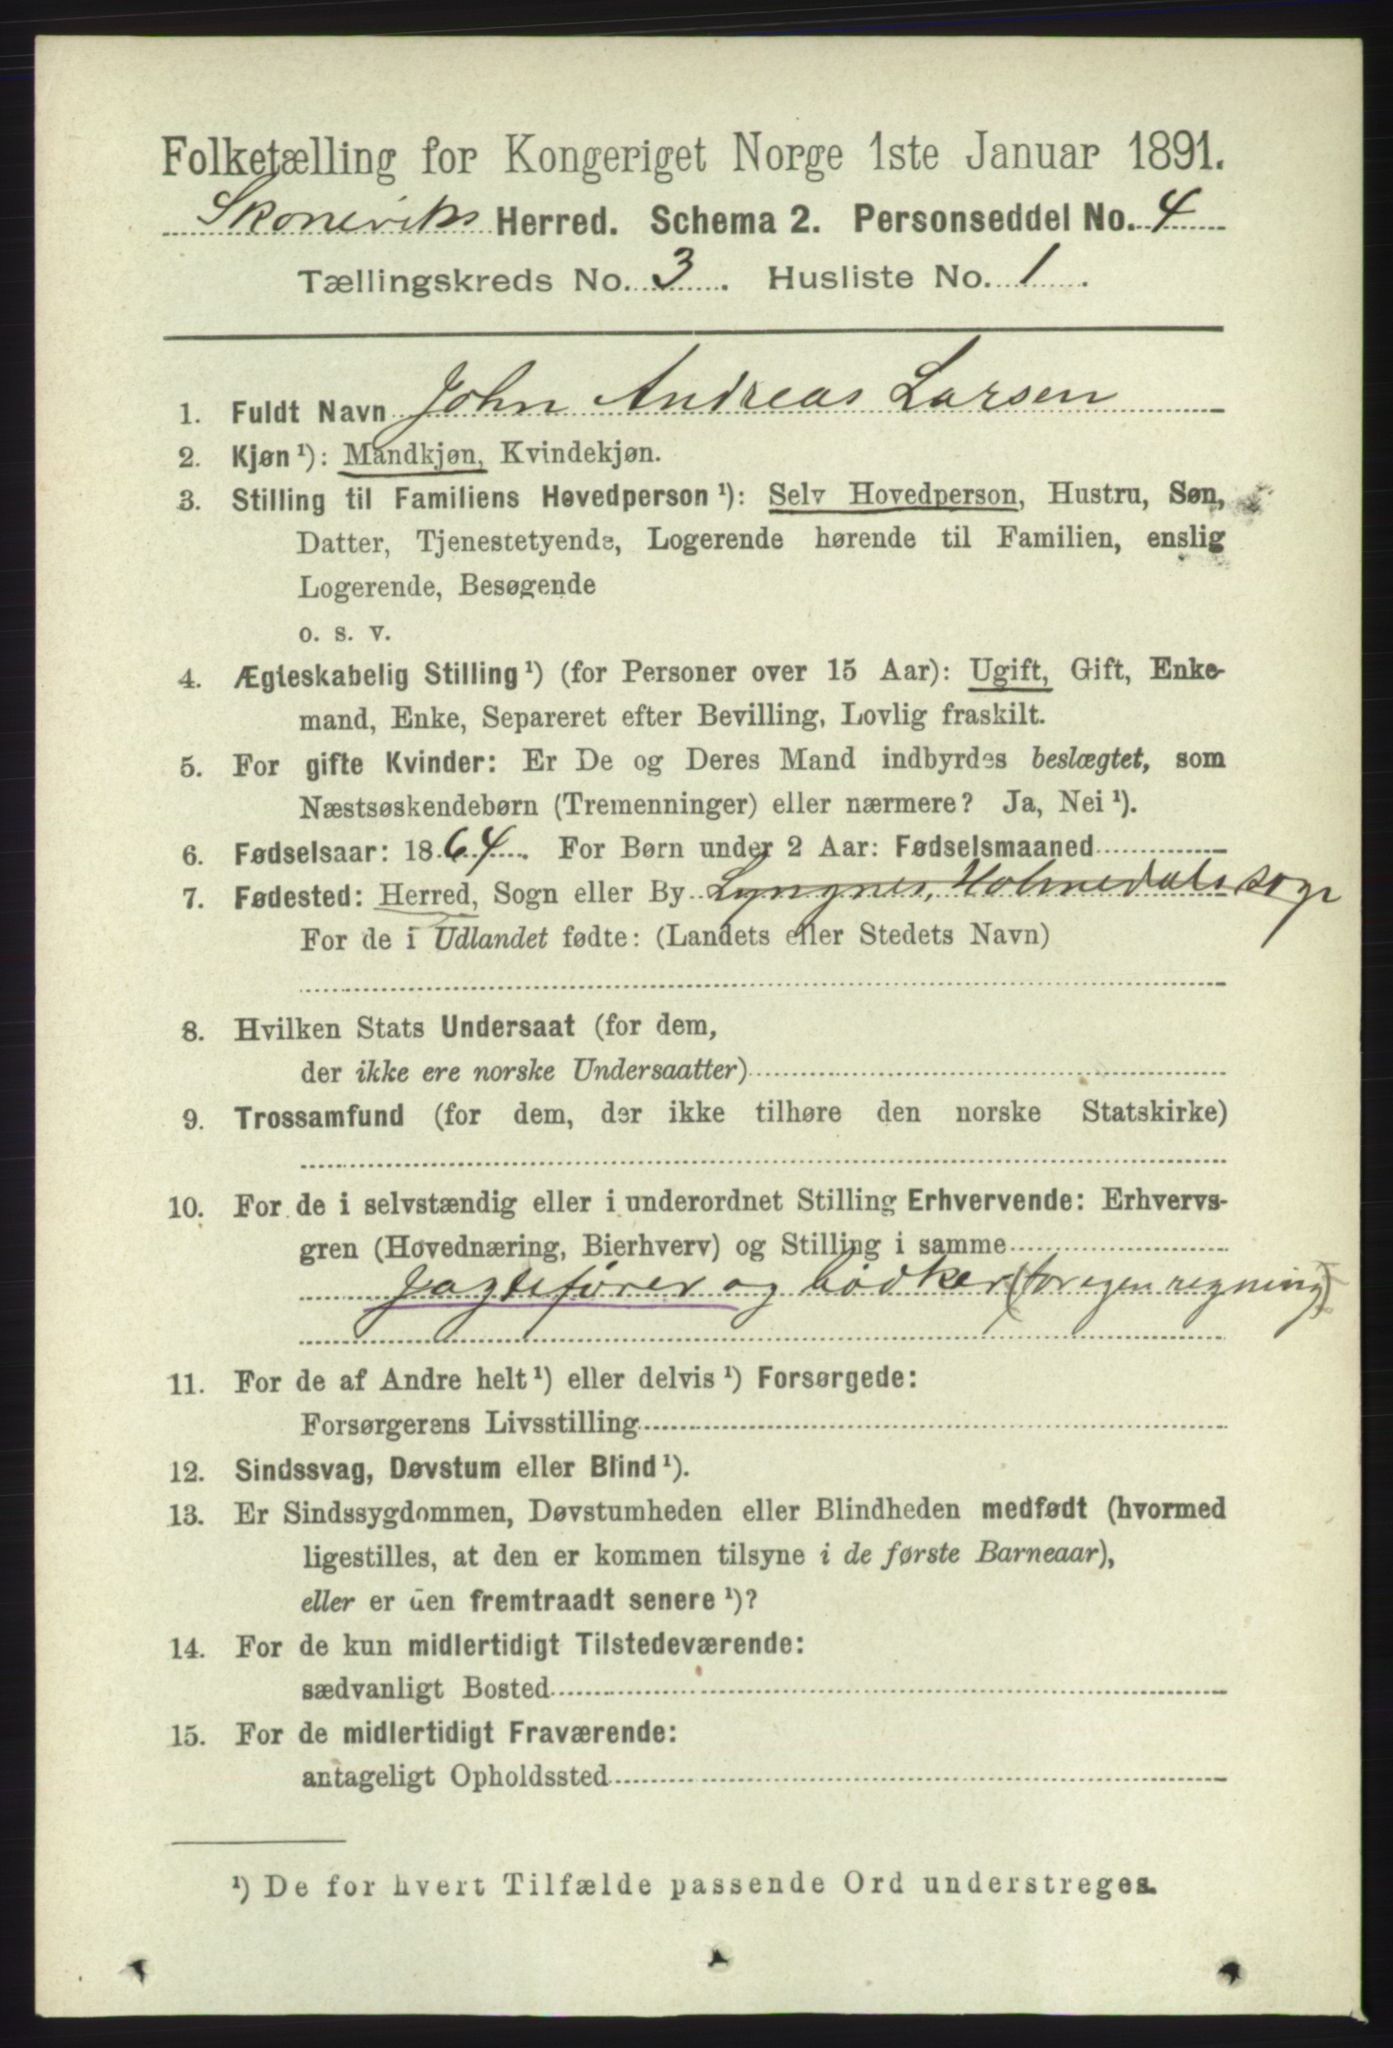 Folketælling for Kongeriget Norge 1ste Januar 1891.
Skoneviks Herred. Schema 2. Personseddel No. 4
Tællingskreds No. 3. Husliste No. 1.
1. Fuldt Navn John Andreas Larsen
2. Kjøn ¹): Mandkjøn, Kvindekjøn.
3. Stilling til Familiens Hovedperson ¹): Selv Hovedperson, Hustru, Søn,
Datter, Tjenestetyende, Logerende hørende til Familien, enslig
Logerende, Besøgende
o. s. v.
4. Ægteskabelig Stilling ¹) (for Personer over 15 Aar): Ugift, Gift, Enke-
mand, Enke, Separeret efter Bevilling, Lovlig fraskilt.
5. For gifte Kvinder: Er De og Deres Mand indbyrdes beslægtet, som
Næstsøskendebørn (Tremenninger) eller nærmere? Ja, Nei ¹).
6. Fødselsaar: 1864. For Børn under 2 Aar: Fødselsmaaned
7. Fødested: Herred, Sogn eller By Lyngnes, Holmedals sogn
For de i Udlandet fødte: (Landets eller Stedets Navn)
8. Hvilken Stats Undersaat (for dem,
der ikke ere norske Undersaatter)
9. Trossamfund (for dem, der ikke tilhøre den norske Statskirke)
10. For de i selvstændig eller i underordnet Stilling Erhvervende: Erhvervs-
gren (Hovednæring, Bierhverv) og Stilling i samme
Jagtefører og bødker (for egen regning)
11. For de af Andre helt ¹) eller delvis ¹) Forsørgede:
Forsørgerens Livsstilling
12. Sindssvag, Døvstum eller Blind ¹).
13. Er Sindssygdommen, Døvstumheden eller Blindheden medfødt (hvormed
ligestilles, at den er kommen tilsyne i de første Barneaar),
eller er den fremtraadt senere ¹)?
14. For de kun midlertidigt Tilstedeværende:
sædvanligt Bosted
15. For de midlertidigt Fraværende:
antageligt Opholdssted
¹) De for hvert Tilfælde passende Ord understreges.